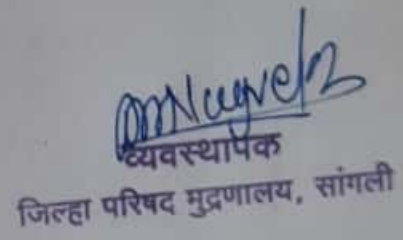 व्यवस्थापक
जिल्हा परिषद मुद्रणालय, सांगली